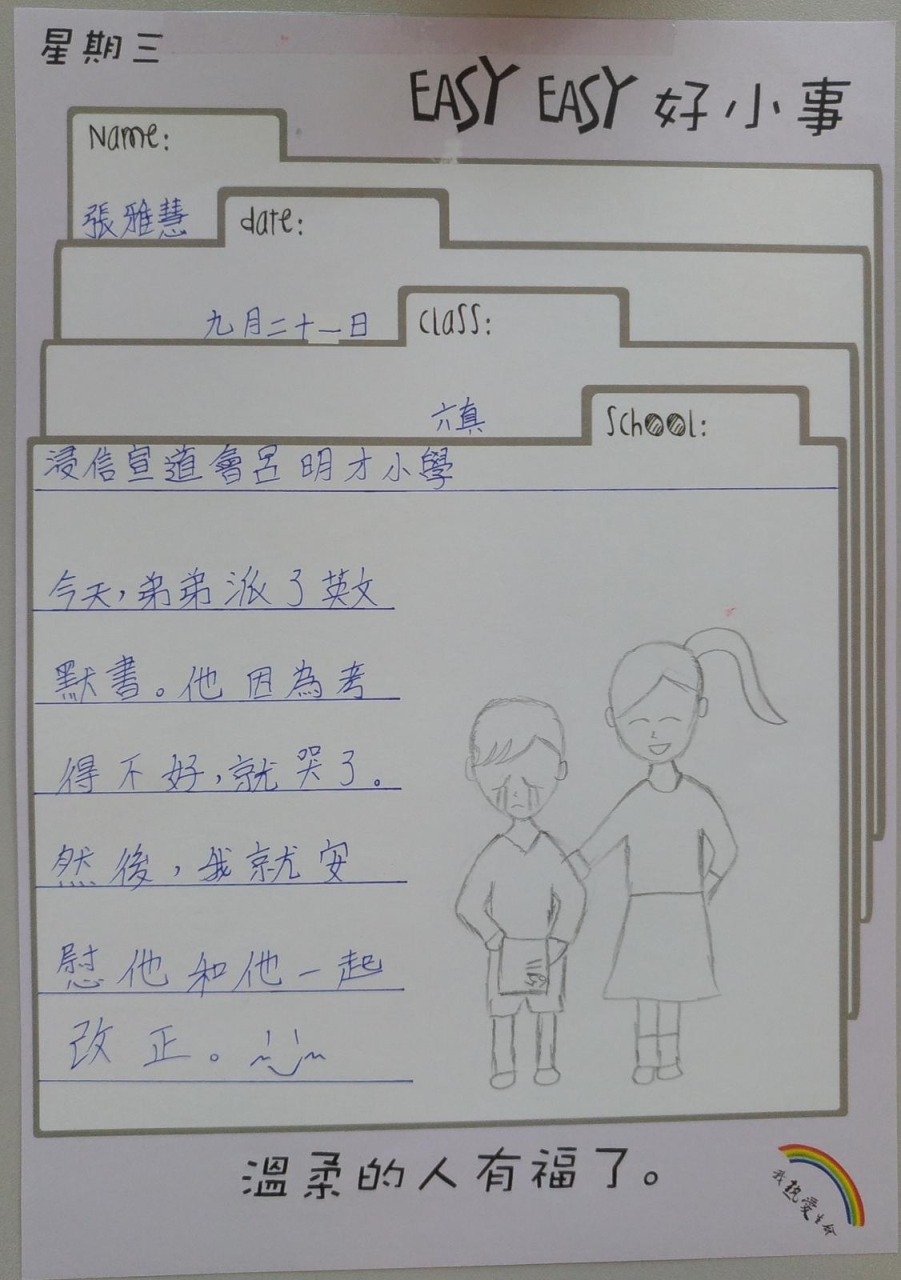 星期三
EASY EASY 好小事
Name:
張雅慧
date:
九月二十一日
Class:
六真
School:
浸信宣道會呂明才小學
今天,弟弟派了英文
默書。他因為考
得不好,就哭了。
然後,我就安
慰他和他一起
改正。
59
溫柔的人有福了。
我熱愛生命